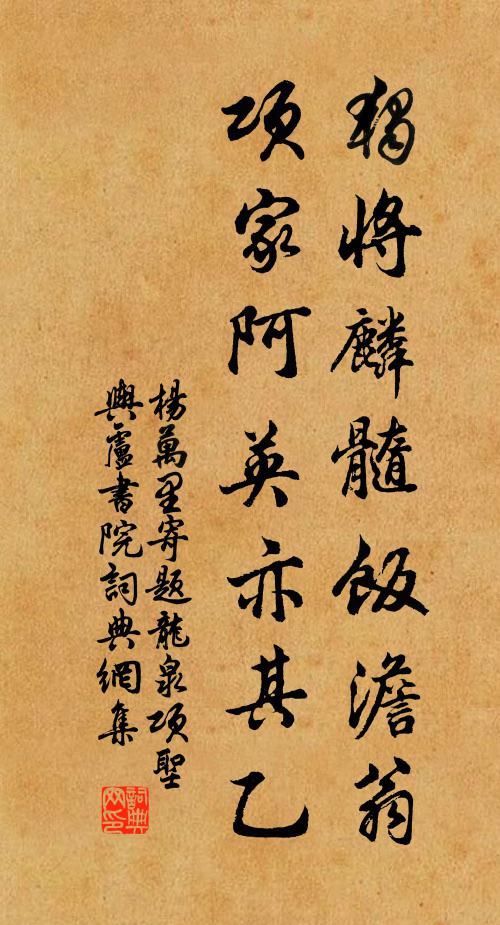 獨將麟髓飯澹翁
項家阿英亦其乙
楊萬里寄題龍泉項聖
與盧書院詞典網集
詞典網印